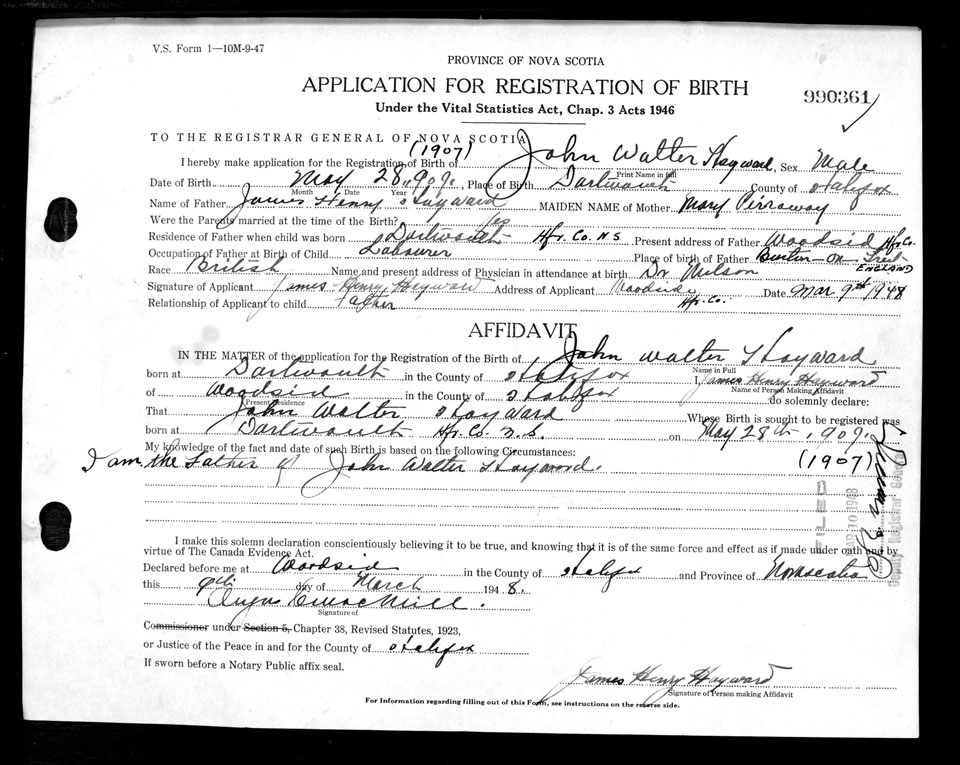 V.S. Form 1—10M-9-47
PROVINCE OF NOVA SCOTIA
APPLICATION FOR REGISTRATION OF BIRTH
990361
Under the Vital Statistics Act, Chap. 3 Acts 1946
TO THE REGISTRAR GENERAL OF NOVA SCOTIA
(1907)
I hereby make application for the Registration of Birth of John Walter Hayward, Sex Male
Print Name in full
Date of Birth May 28, 1907, Place of Birth Dartmouth County of Halifax
Month Date Year
Name of Father James Henry Hayward MAIDEN NAME of Mother Mary Perraway
Were the Parents married at the time of the Birth? Yes
Residence of Father when child was born Dartmouth Hfx. Co. N S Present address of Father Woodsid Hfx Co.
Occupation of Father at Birth of Child Labourer Place of birth of Father Burton-On-Trent ENGLAND
Race British Name and present address of Physician in attendance at birth Dr Wilson
Signature of Applicant James Henry Hayward Address of Applicant Woodside Hfx. Co. Date Mar 9th 1948
Relationship of Applicant to child Father
AFFIDAVIT
IN THE MATTER of the application for the Registration of the Birth of John Walter Hayward
Name in Full
born at Dartmouth in the County of Halifax I, James Henry Hayward
Name of Person Making Affidavit
of Woodsid in the County of Halifax do solemnly declare:
Present Residence
That John Walter Hayward Whose Birth is sought to be registered was
born at Dartmouth Hfx. Co. N.S. on May 28th, 1907.
My knowledge of the fact and date of such Birth is based on the following Circumstances: (1907)
I am the Father of John Walter Hayward.
FILED
MAR 10 1948
Deputy Registrar General
I make this solemn declaration conscientiously believing it to be true, and knowing that it is of the same force and effect as if made under oath and by
virtue of The Canada Evidence Act.
Declared before me at Woodsid in the County of Halifax and Province of Novascotia
this 9th day of March 1948.
Signature of
Commissioner under Section 5, Chapter 38, Revised Statutes, 1923,
or Justice of the Peace in and for the County of Halifax
If sworn before a Notary Public affix seal.
James Henry Hayward
Signature of Person making Affidavit
For Information regarding filling out of this Form, see instructions on the reverse side.